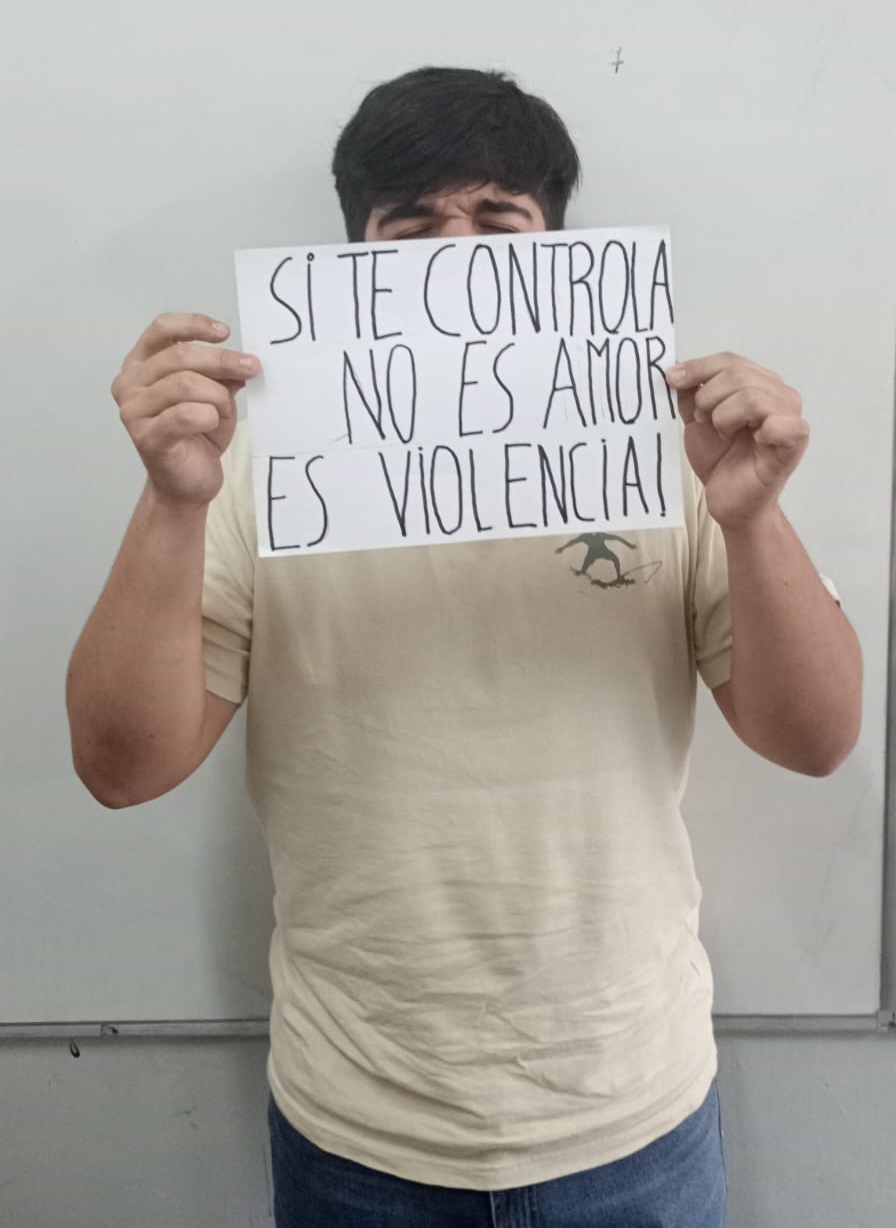 Si TE CONTROLA
NO ES AMOR
ES ViOLENCiA!